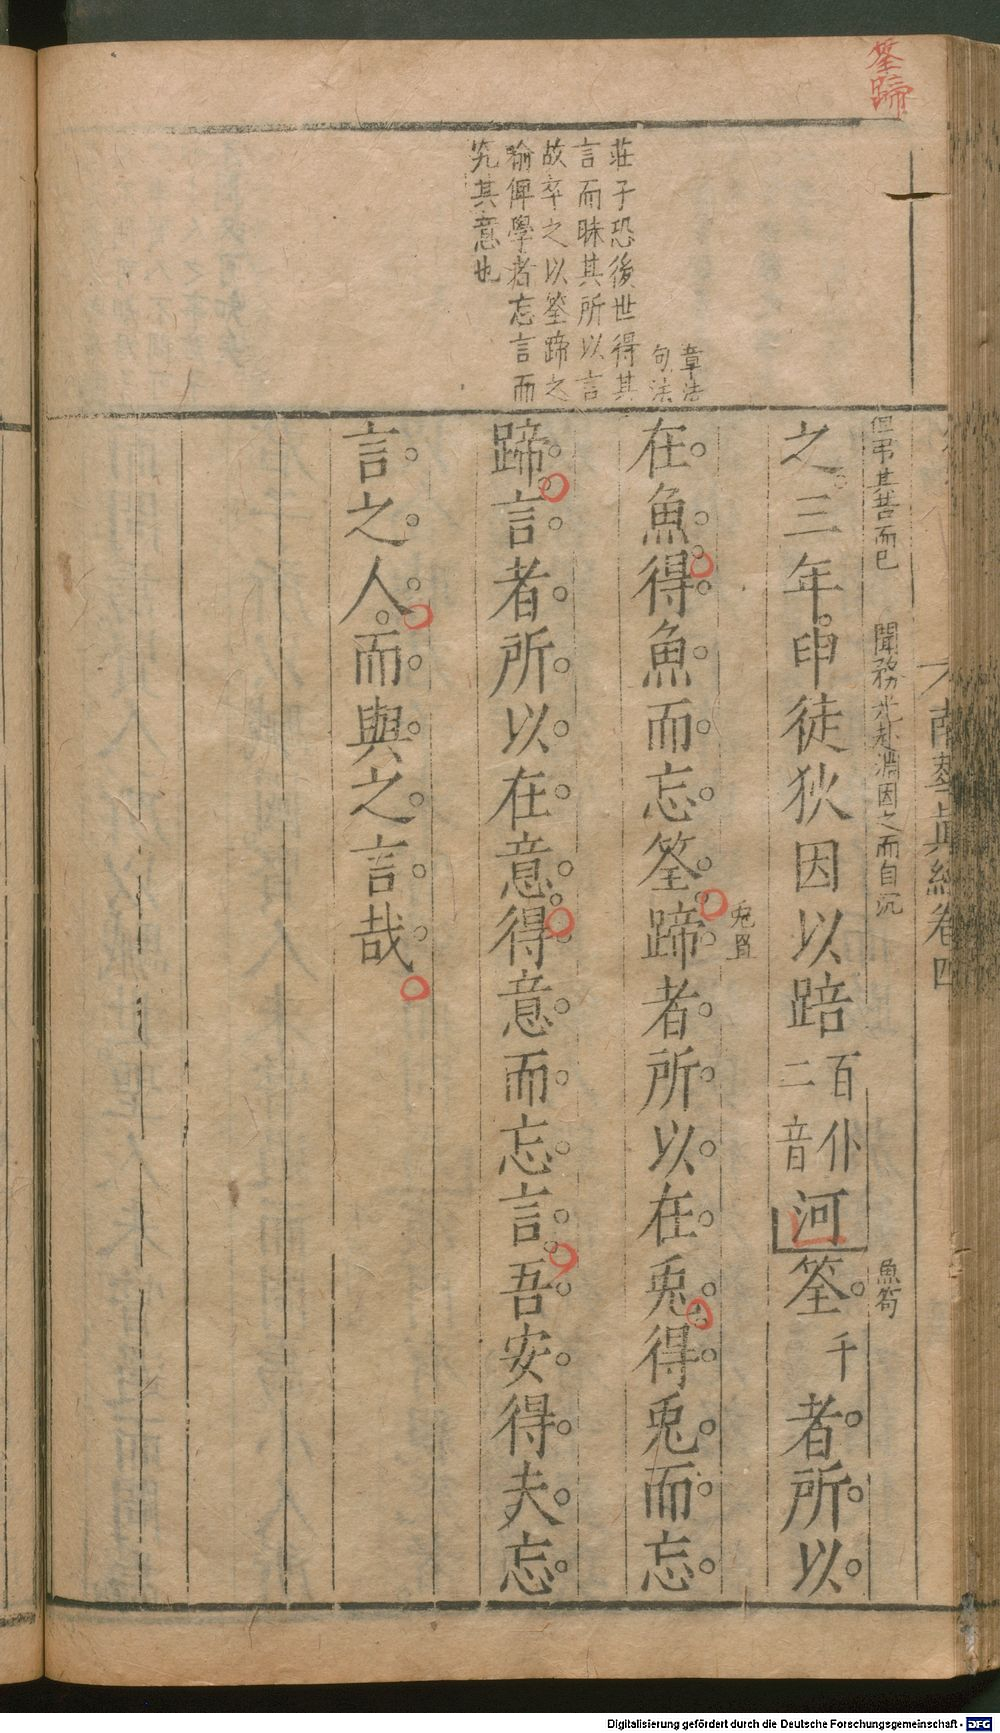 筌蹄
南華眞經卷四
章法
句法
莊子恐後世得其
言而昧其所以言
故卒之以筌蹄之
喻俾學者忘言而
究其意也
但弔其苦而已 聞務光赴淵因之而自沉 魚笱
之三年申徒狄因以踣百仆二音河筌千者所以
兎罝
在魚得魚而忘筌蹄者所以在兎得兎而忘
蹄言者所以在意得意而忘言吾安得夫忘
言之人而與之言哉
Digitalisierung gefördert durch die Deutsche Forschungsgemeinschaft - DFG